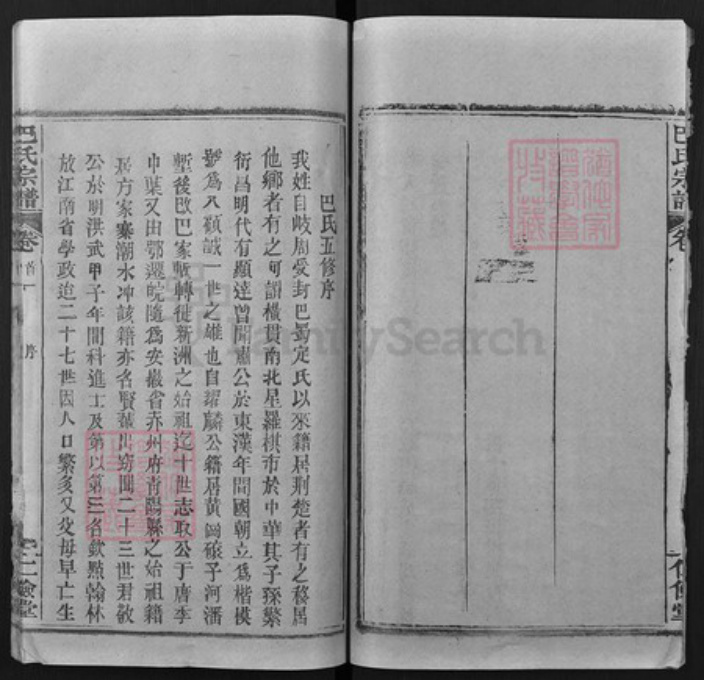 巴氏宗譜
卷
巴氏五修序
我姓自岐周受封巴蜀定氏以來籍居荆楚者有之移居
他鄉者有之可謂橫貫南北星羅棋布於中華其子孫繁
衍昌明代有顯達曾聞肅公於東漢年間國朝立為楷模
號為八顧誠一世之雄也自躍麟公籍居黃岡磙子河潘
塹後改巴家塹轉徙新洲之始祖迄十世志取公于唐季
中葉又由鄂遷皖隨為安徽省赤州府青陽縣之始祖籍
居方家寨潮水冲該籍亦名賢輩出窃聞二十三世君敬
公於明洪武甲子年間科進士及第以第三名欽點翰林
放江南省學政迨二十七世因人口繁多又父母早亡生
巴氏宗譜
卷首一
序
仁儉堂
FamilySearch